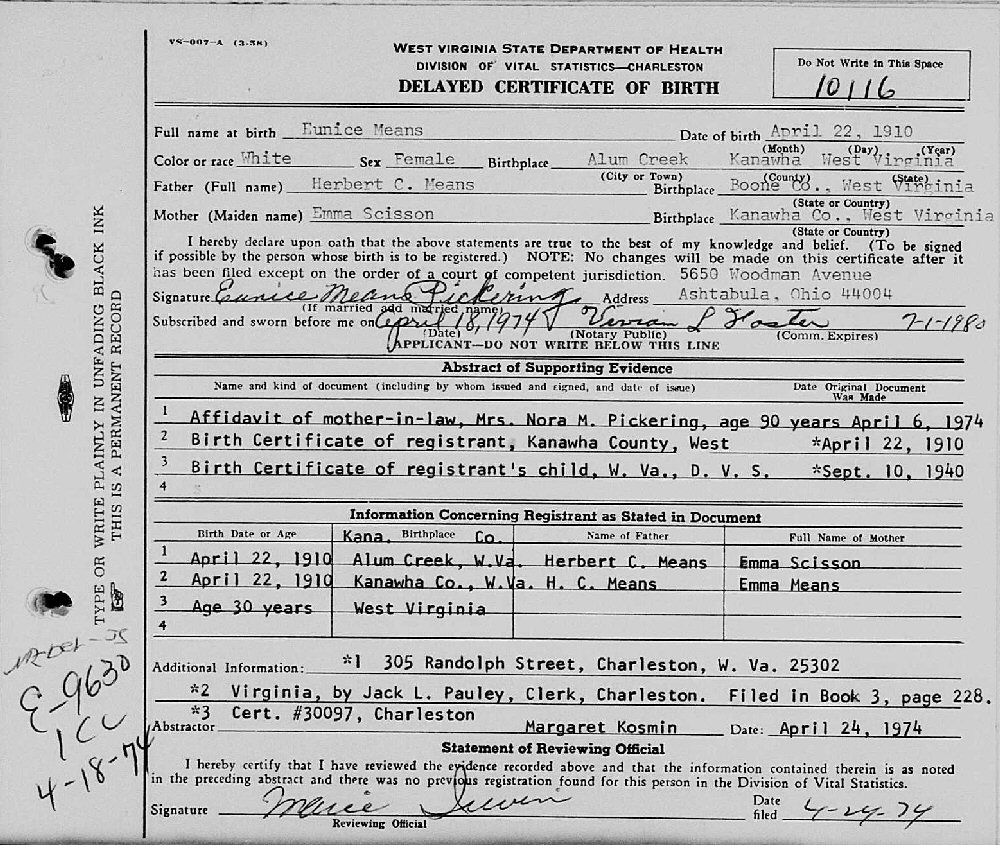 VS-007-A (3-58)
WEST VIRGINIA STATE DEPARTMENT OF HEALTH
DIVISION OF VITAL STATISTICS—CHARLESTON
DELAYED CERTIFICATE OF BIRTH
Do Not Write in This Space
10116
Full name at birth Eunice Means Date of birth April 22, 1910
(Month) (Day) (Year)
Color or race White Sex Female Birthplace Alum Creek Kanawha West Virginia
(City or Town) (County) (State)
Father (Full name) Herbert C. Means Birthplace Boone Co., West Virginia
(State or Country)
Mother (Maiden name) Emma Scisson Birthplace Kanawha Co., West Virginia
(State or Country)
I hereby declare upon oath that the above statements are true to the best of my knowledge and belief. (To be signed
if possible by the person whose birth is to be registered.) NOTE: No changes will be made on this certificate after it
has been filed except on the order of a court of competent jurisdiction. 5650 Woodman Avenue
Signature Eunice Means Pickering Address Ashtabula, Ohio 44004
(If married add married name)
Subscribed and sworn before me on April 18, 1974 Vivian L Hoster 7-1-1980
(Date) (Notary Public) (Comm. Expires)
APPLICANT—DO NOT WRITE BELOW THIS LINE
Abstract of Supporting Evidence
Name and kind of document (including by whom issued and signed, and date of issue) Date Original Document
Was Made
1 Affidavit of mother-in-law, Mrs. Nora M. Pickering, age 90 years April 6, 1974
2 Birth Certificate of registrant, Kanawha County, West *April 22, 1910
3 Birth Certificate of registrant's child, W. Va., D. V. S. *Sept. 10, 1940
4
Information Concerning Registrant as Stated in Document
Birth Date or Age Kana. Birthplace Co. Name of Father Full Name of Mother
1 April 22, 1910 Alum Creek, W.Va. Herbert C. Means Emma Scisson
2 April 22, 1910 Kanawha Co., W.Va. H. C. Means Emma Means
3 Age 30 years West Virginia
4
Additional Information: *1 305 Randolph Street, Charleston, W. Va. 25302
*2 Virginia, by Jack L. Pauley, Clerk, Charleston. Filed in Book 3, page 228.
*3 Cert. #30097, Charleston
Abstractor Margaret Kosmin Date: April 24, 1974
Statement of Reviewing Official
I hereby certify that I have reviewed the evidence recorded above and that the information contained therein is as noted
in the preceding abstract and there was no previous registration found for this person in the Division of Vital Statistics.
Signature Marie Date filed 4-24-74
Reviewing Official
TYPE OR WRITE PLAINLY IN UNFADING BLACK INK
THIS IS A PERMANENT RECORD
E-9630
1CC
4-18-74